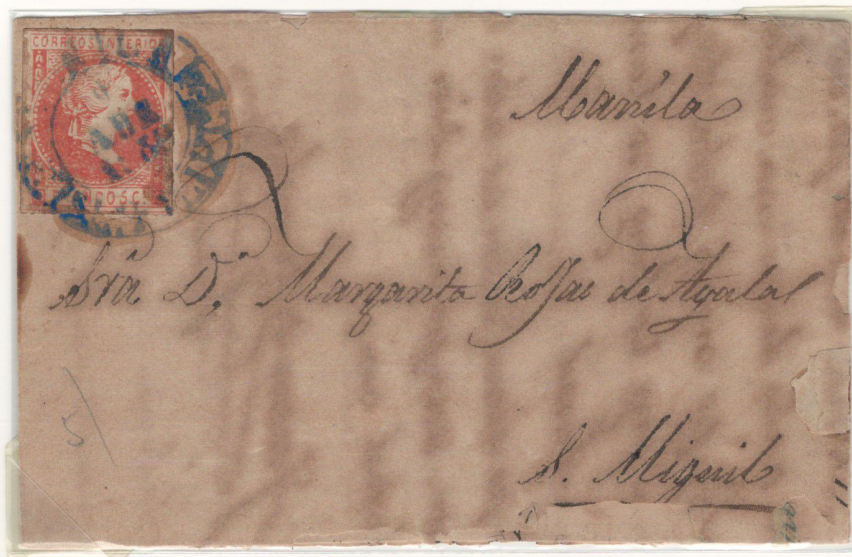 CORREOS INTERIOR
Manila
Sra. D.ª Margarita Rojas de Ayala
S. Miguel
5